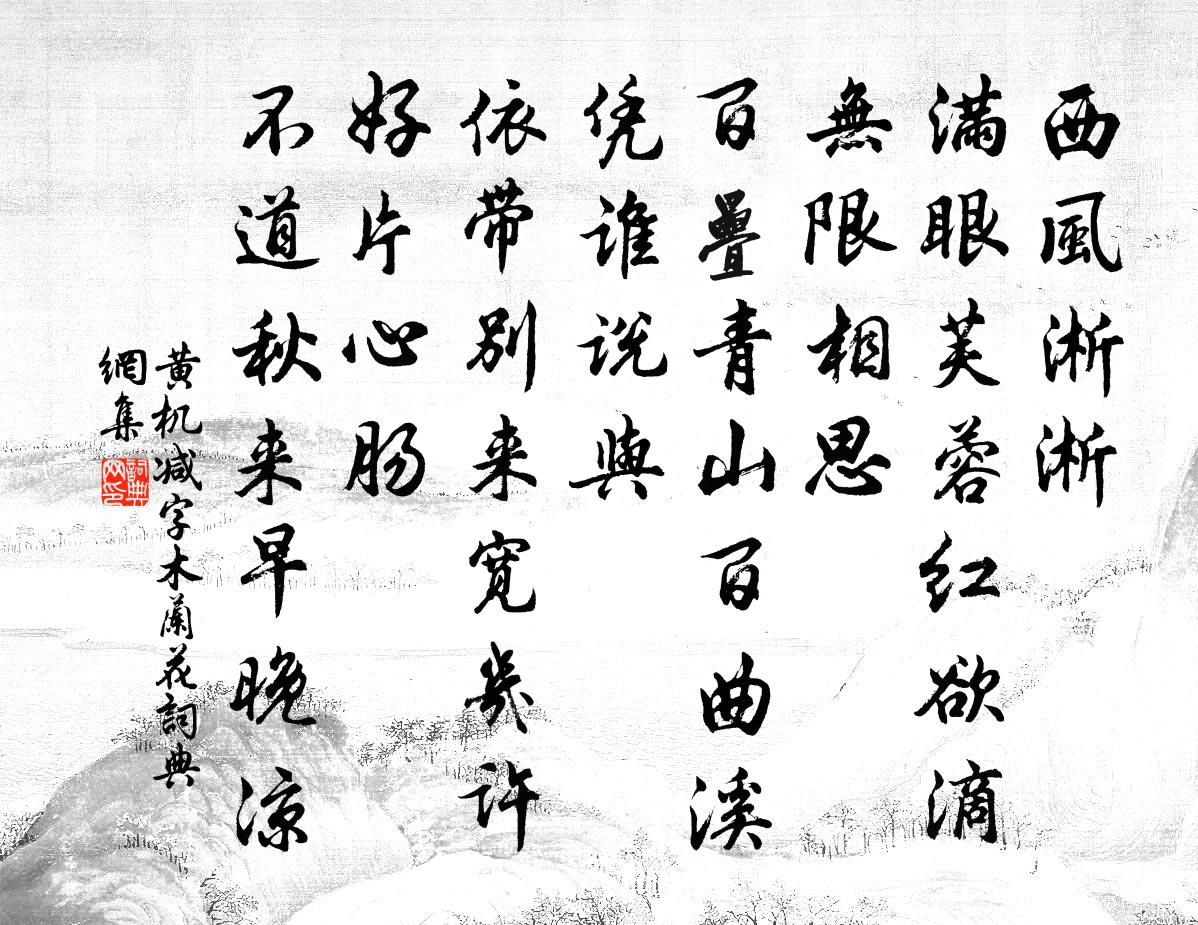 西風淅淅
滿眼芙蓉红欲滴
無限相思
百疊青山百曲溪
凭誰说與
依带别来宽幾许
好片心肠
不道秋来早晚凉
黄机减字木蘭花詞典
網集
詞典
网印